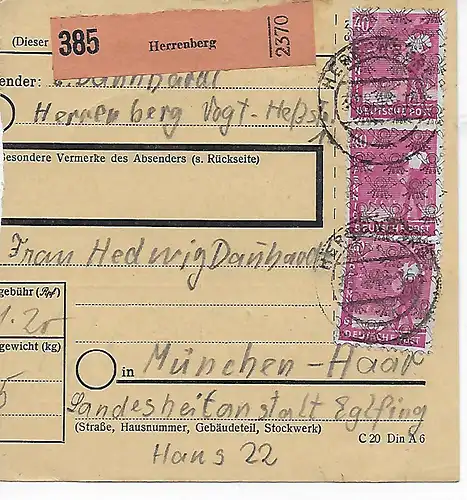 (Dieser
385 Herrenberg 2370
ender:
Herrenberg Vogt-Heßstr
Besondere Vermerke des Absenders (s. Rückseite)
Frau Hedwig Dannhardt
gebühr (Rpf)
1.20
gewicht (kg)
5
in München-Haar
Landesheilanstalt Eglfing
(Straße, Hausnummer, Gebäudeteil, Stockwerk)
C 20 Din A 6
Haus 22
40
DEUTSCHE POST
40
DEUTSCHE POST
DEUTSCHE POST